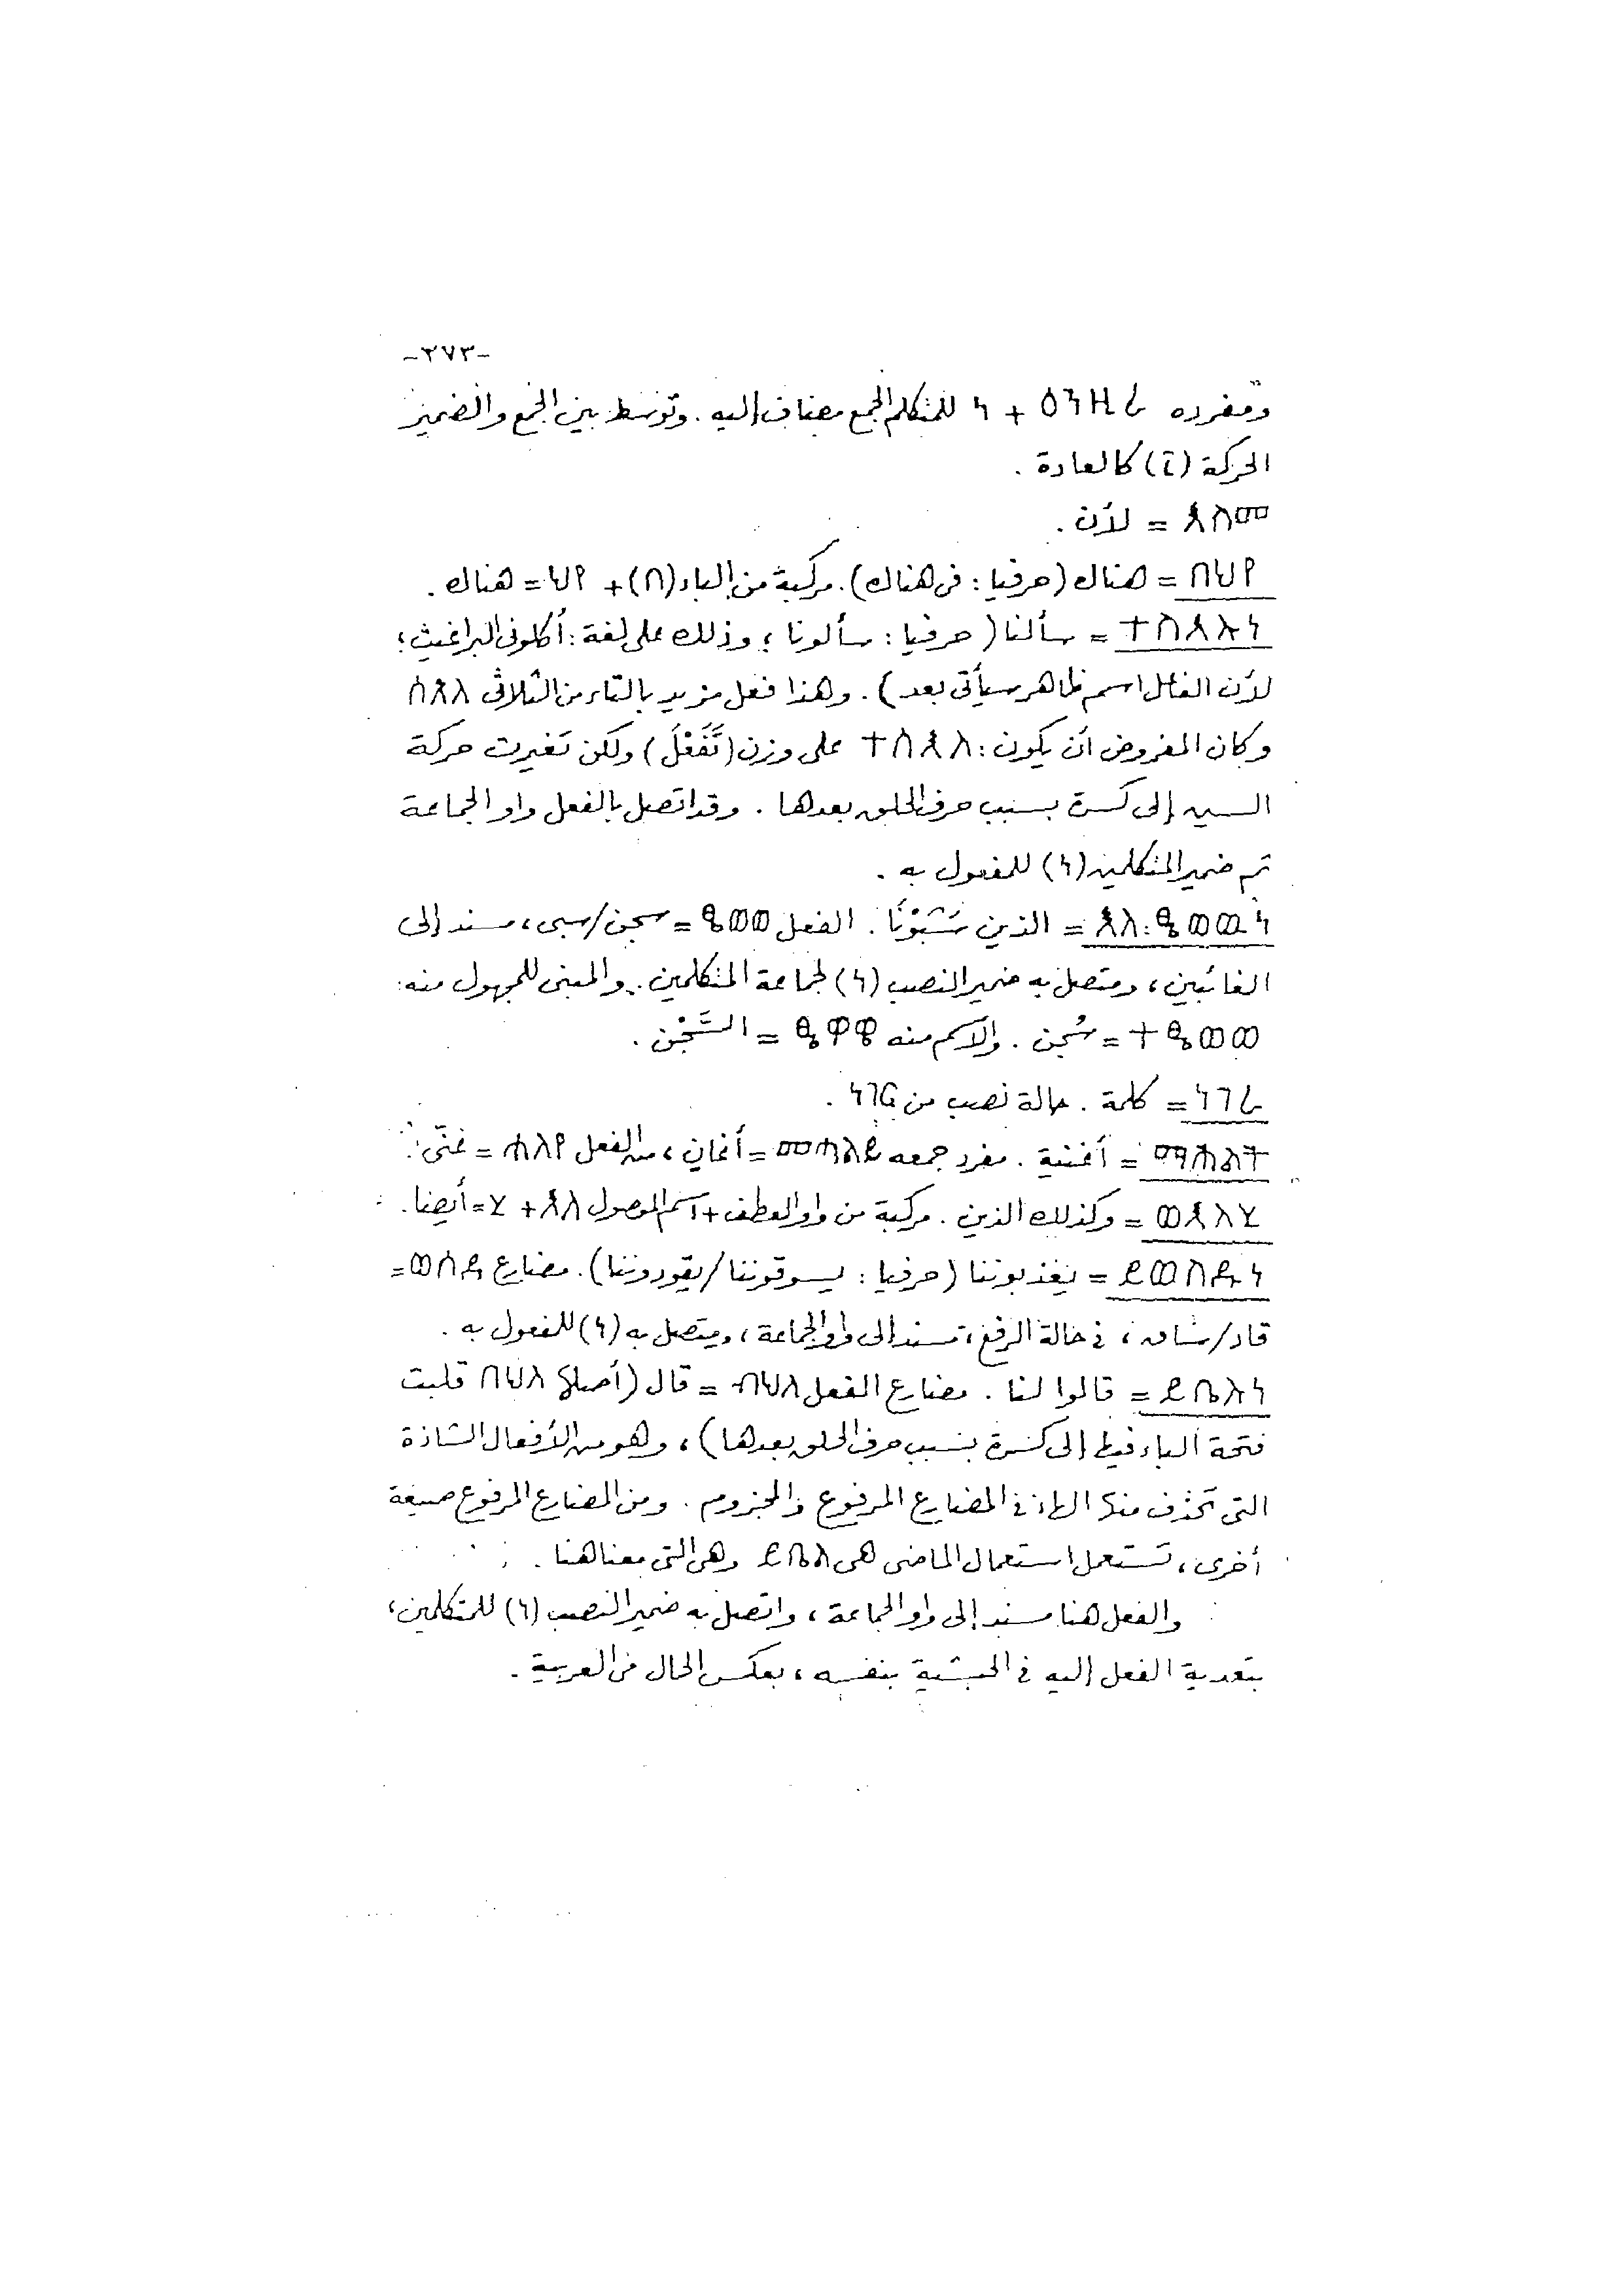 -٢٧٣-
ومفرده ዕንዚራ + ነ للمتكلم الجمع مضاف إليه . وتوسط بين الجمع والضمير
الحركة (ī) كالعادة .
እስመ = لأن .
በህየ = هناك (حرفيا : فى هناك) . مركبة من الباء (በ) + ህየ = هناك .
ተስእሉነ = سألنا (حرفيا : سألونا ؛ وذلك على لغة : أكلونى البراغيث ؛
لأن الفاعل اسم ظاهر سيأتى بعد) . وهذا فعل مزيد بالتاء من الثلاثى ሰአለ
وكان المفروض أن يكون : ተሰአለ على وزن (تَفَعْلَ) ولكن تغيرت حركة
السين إلى كسرة بسبب حرف الحلق بعدها . وقد اتصل بالفعل واو الجماعة
ثم ضمير المتكلمين (ነ) للمفعول به .
እለ፡ ፄወዉነ = الذين سَبَوْنَا . الفعل ፄወወ = سجن/سبى ، مسند إلى
الغائبين ، ومتصل به ضمير النصب (ነ) لجماعة المتكلمين . والمبنى للمجهول منه :
ተፄወወ = سُجن . والاسم منه = السَّجْن .
ነገረ = كلمة . حالة نصب من ነገር .
ማኅሌተ = أغنية . مفرد جمعه ማኅልይ = أغانٍ ، من الفعل ኀለየ = غنّى .
ወእለሂ = وكذلك الذين . مركبة من واو العطف + اسم الموصول እለ + ሂ = أيضا .
ይወስዱነ = يعذبوننا (حرفيا : يسوقوننا/يقودوننا) . مضارع ወሰደ =
قاد/ساق ، فى حالة الرفع ، مسند إلى واو الجماعة ، ويتصل به (ነ) للمفعول به .
ይቤሉነ = قالوا لنا . مضارع الفعل ብህለ = قال (أصله በህለ قلبت
فتحة الباء فيه إلى كسرة بسبب حرف الحلق بعدها) ، وهو من الأفعال الشاذة
التى تحذف منها الهاء فى المضارع المرفوع والمجزوم . ومن المضارع المرفوع صيغة
أخرى ، تستعمل استعمال الماضى هى ይቤለ وهى التى معنا هنا .
والفعل هنا مسند إلى واو الجماعة ، واتصل به ضمير النصب (ነ) للمتكلمين ،
بتعدية الفعل إليه فى الحبشية بنفسه ، بعكس الحال فى العربية .